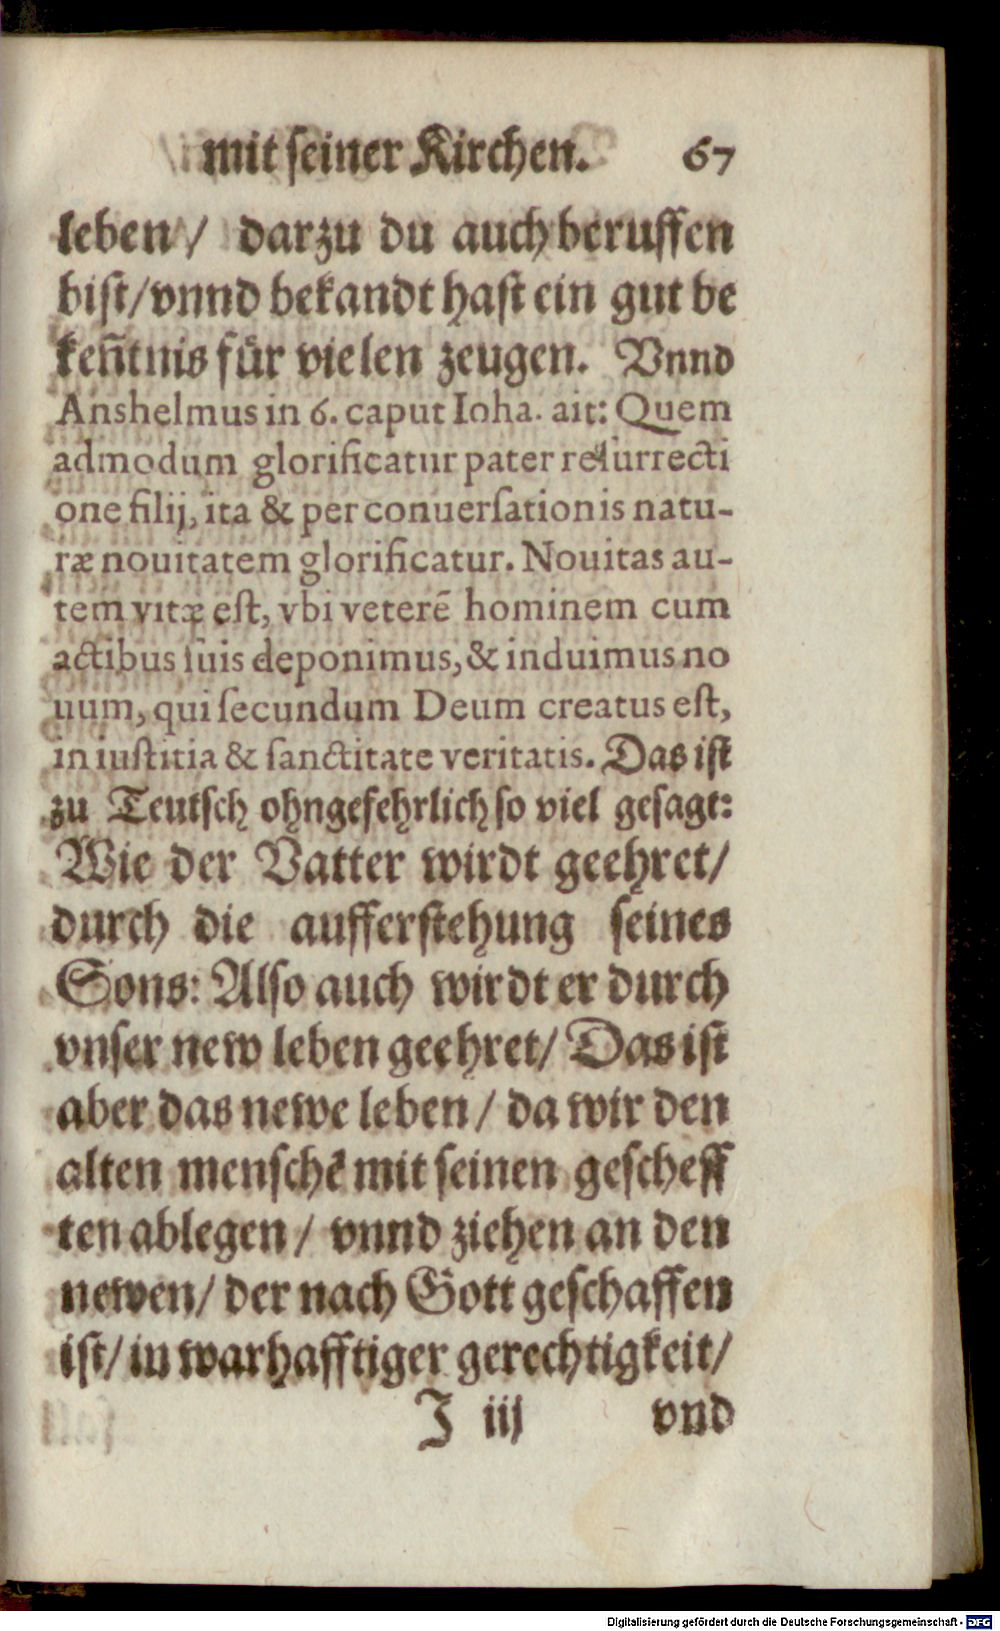 mit seiner Kirchen. 67
leben/ darzu du auch beruffen
bist/ vnnd bekandt hast ein gut be
keñtnis für vielen zeugen. Vnnd
Anshelmus in 6. caput Ioha. ait: Quem
admodum glorificatur pater reſurrecti
one filij, ita & per conuerſationis natu-
ræ nouitatem glorificatur. Nouitas au-
tem vitæ eſt, vbi veterē hominem cum
actibus ſuis deponimus, & induimus no
uum, qui ſecundum Deum creatus eſt,
in iuſtitia & ſanctitate veritatis. Das ist
zu Teutsch ohngefehrlich so viel gesagt:
Wie der Vatter wirdt geehret/
durch die aufferstehung seines
Sons: Also auch wirdt er durch
vnser new leben geehret/ Das ist
aber das newe leben/ da wir den
alten menschē mit seinen gescheff
ten ablegen/ vnnd ziehen an den
newen/ der nach Gott geschaffen
ist/ in warhafftiger gerechtigkeit/
J iij vnd
Digitalisierung gefördert durch die Deutsche Forschungsgemeinschaft - DFG